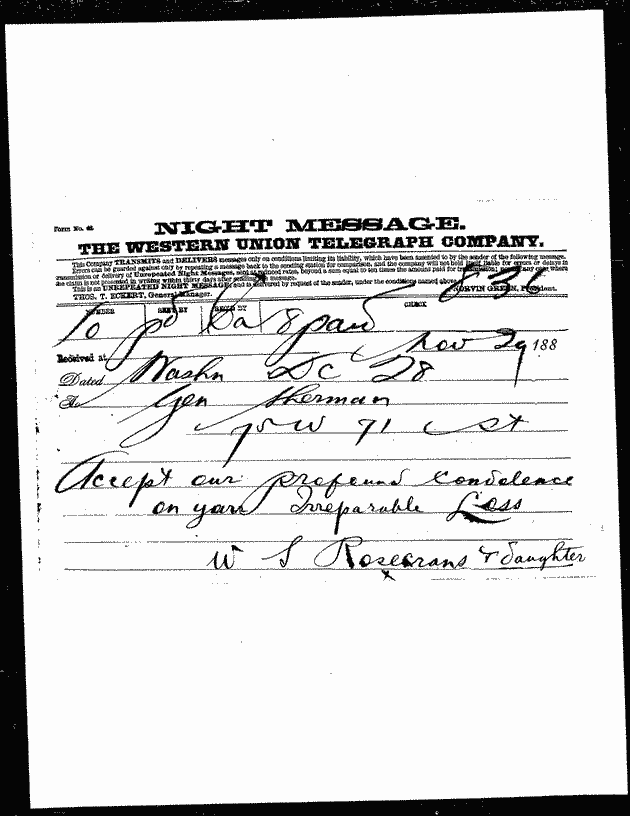 Form No. 45.
NIGHT MESSAGE.
THE WESTERN UNION TELEGRAPH COMPANY.
This Company TRANSMITS and DELIVERS messages only on conditions limiting its liability, which have been assented to by the sender of the following message.
Errors can be guarded against only by repeating a message back to the sending station for comparison, and the company will not hold itself liable for errors or delays in
transmission or delivery of Unrepeated Night Messages, sent at reduced rates, beyond a sum equal to ten times the amount paid for transmission; nor in any case where
the claim is not presented in writing within thirty days after sending the message.
This is an UNREPEATED NIGHT MESSAGE, and is delivered by request of the sender, under the conditions named above.
THOS. T. ECKERT, General Manager. NORVIN GREEN, President.
836
NUMBER SENT BY REC'D BY CHECK
10 po 8 paid
Received at Nov 29 188
Dated Washn DC 28
To Gen Sherman
75 W 71 St
Accept our profound condolence
on your Irreparable Loss
W S Rosecrans & daughter